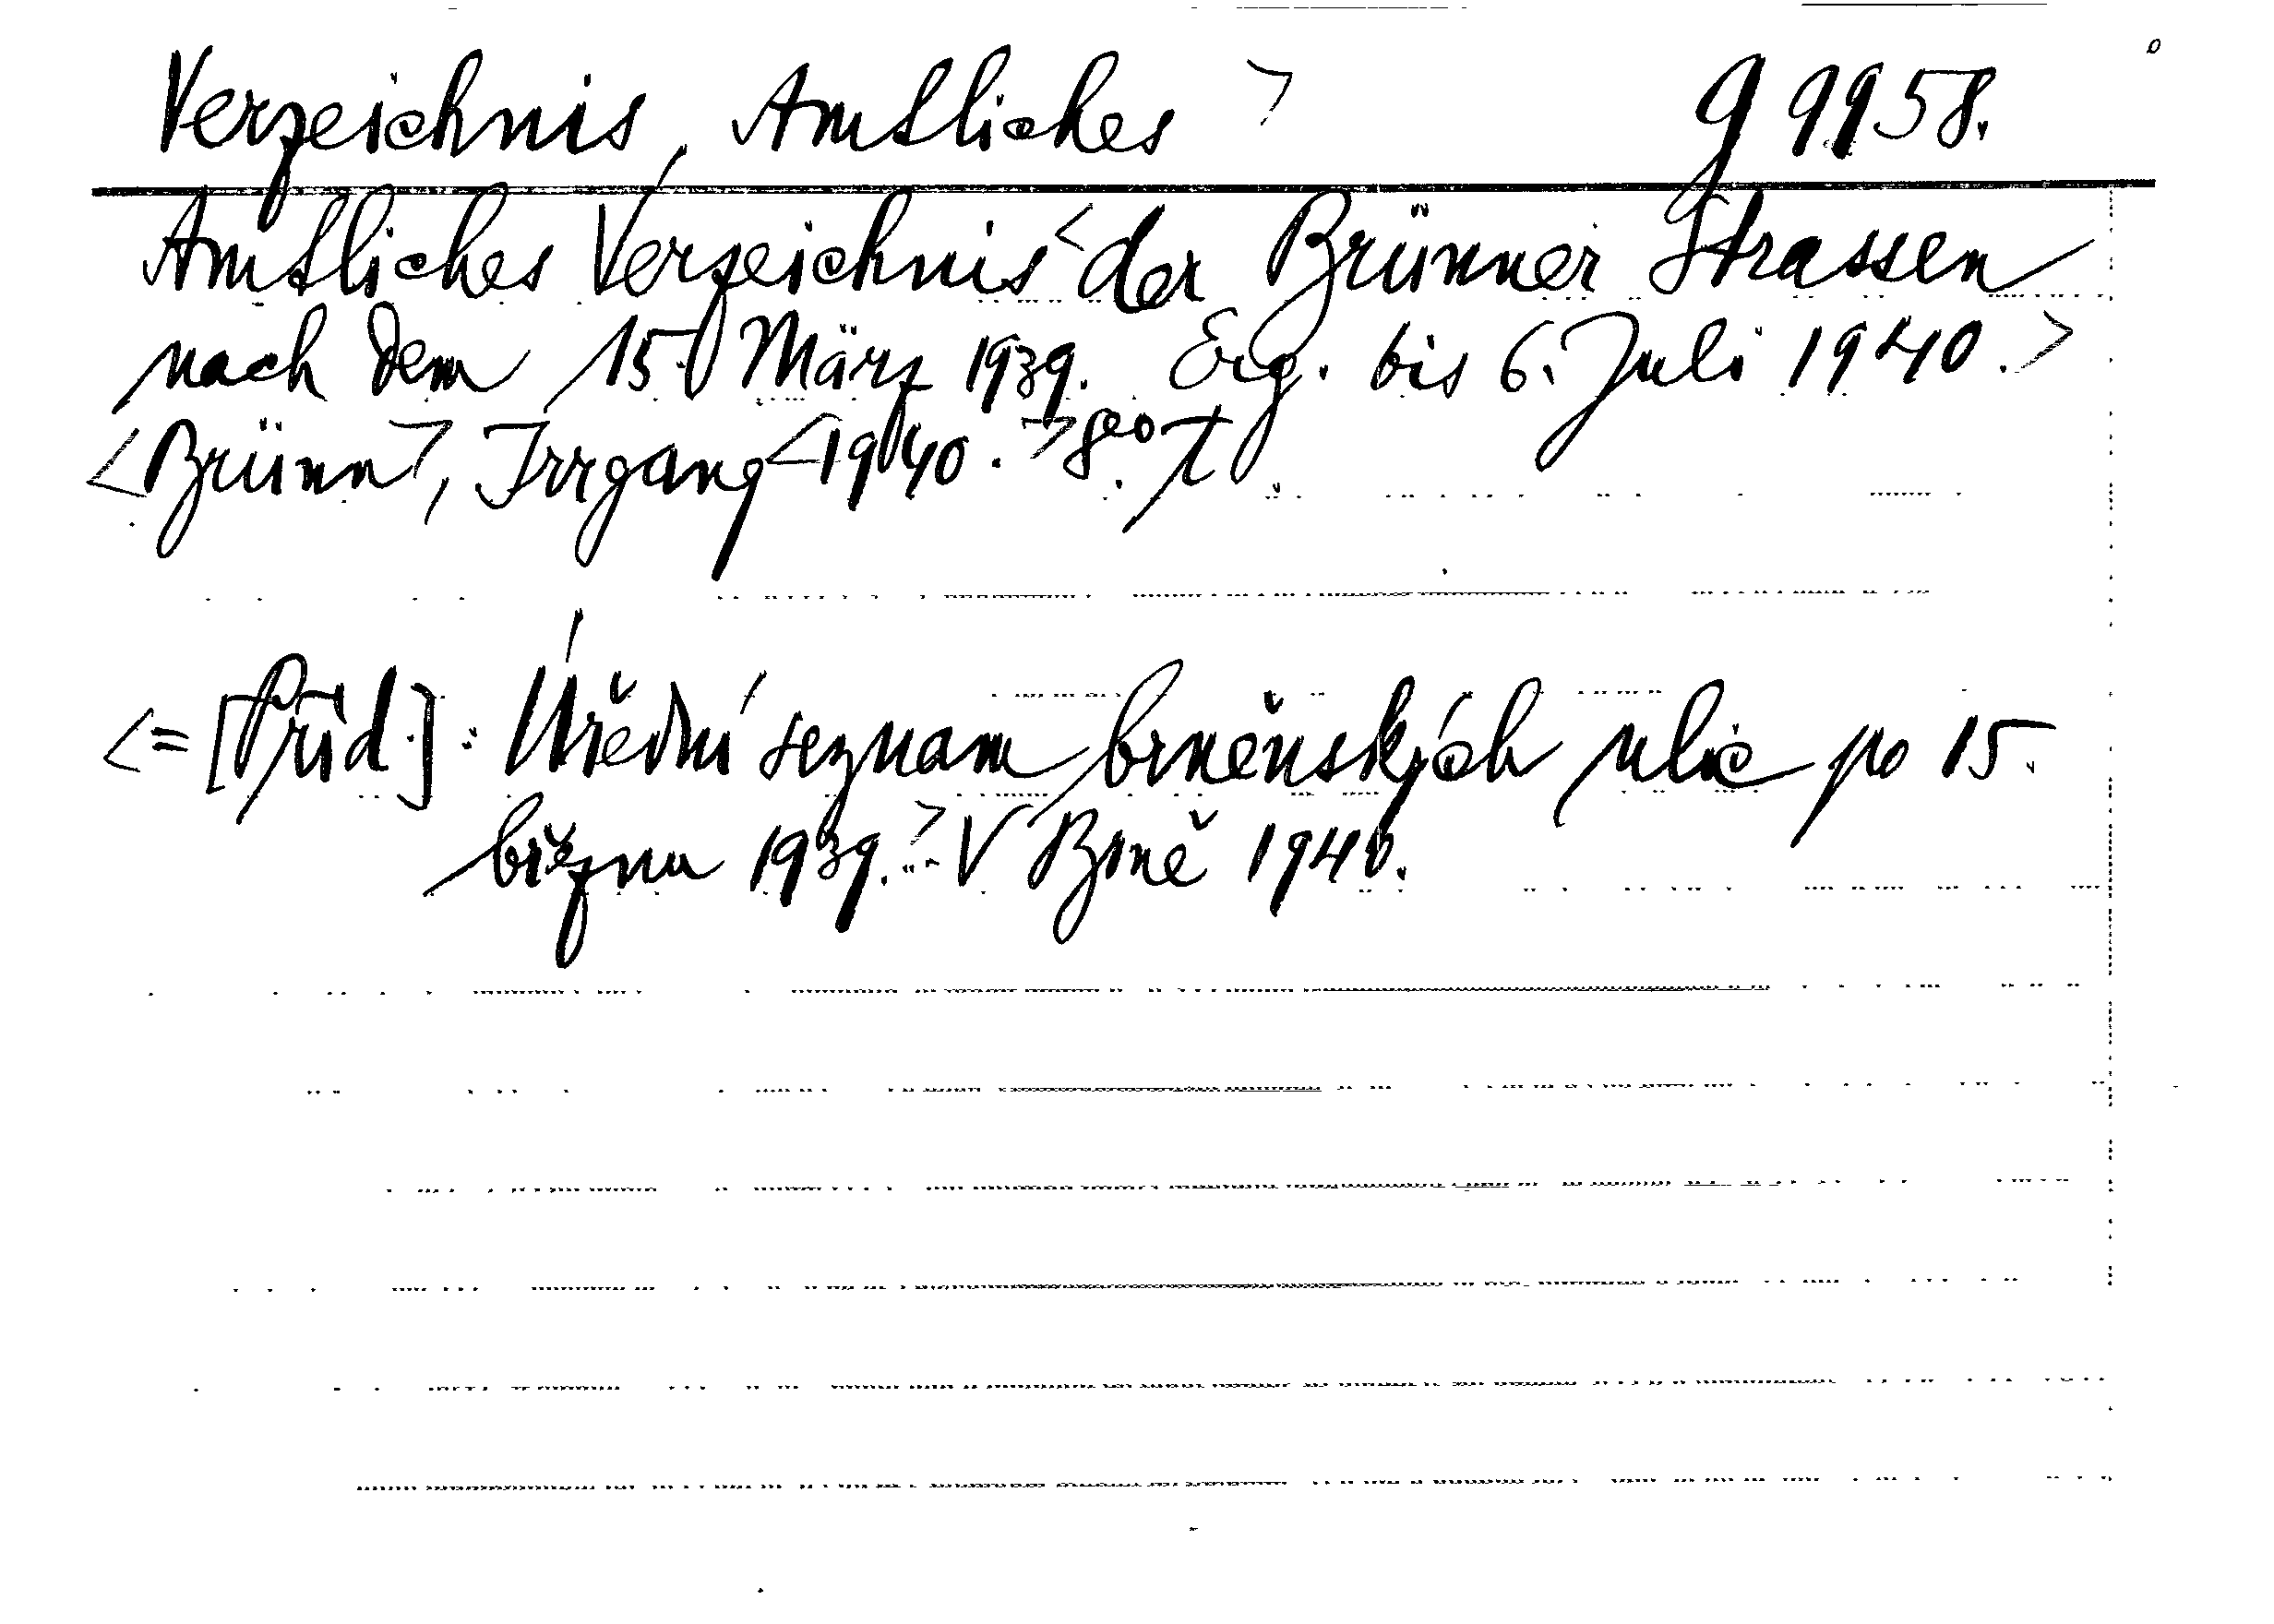 Verzeichnis, Amtliches > g 9958.
Amtliches Verzeichnis < der Brünner Strassen
nach dem 15. März 1939. Erg. bis 6. Juli 1940. >
<Brünn>, Irrgang <1940.> 8°.
<= [Příd.]: Úřední seznam brněnských ulic po 15.
březnu 1939.> V Brně 1940.